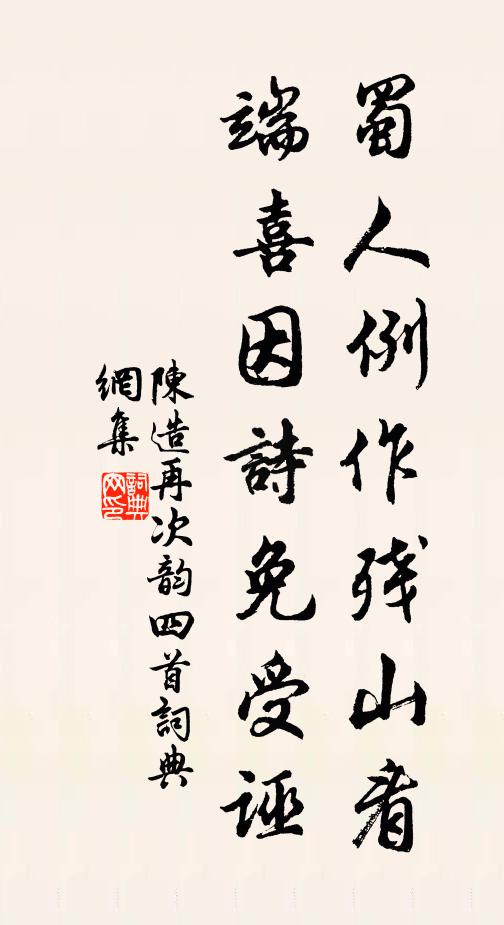 蜀人例作残山看
端喜因詩免受誣
陳造再次韵四首詞典
網集
詞典
网印